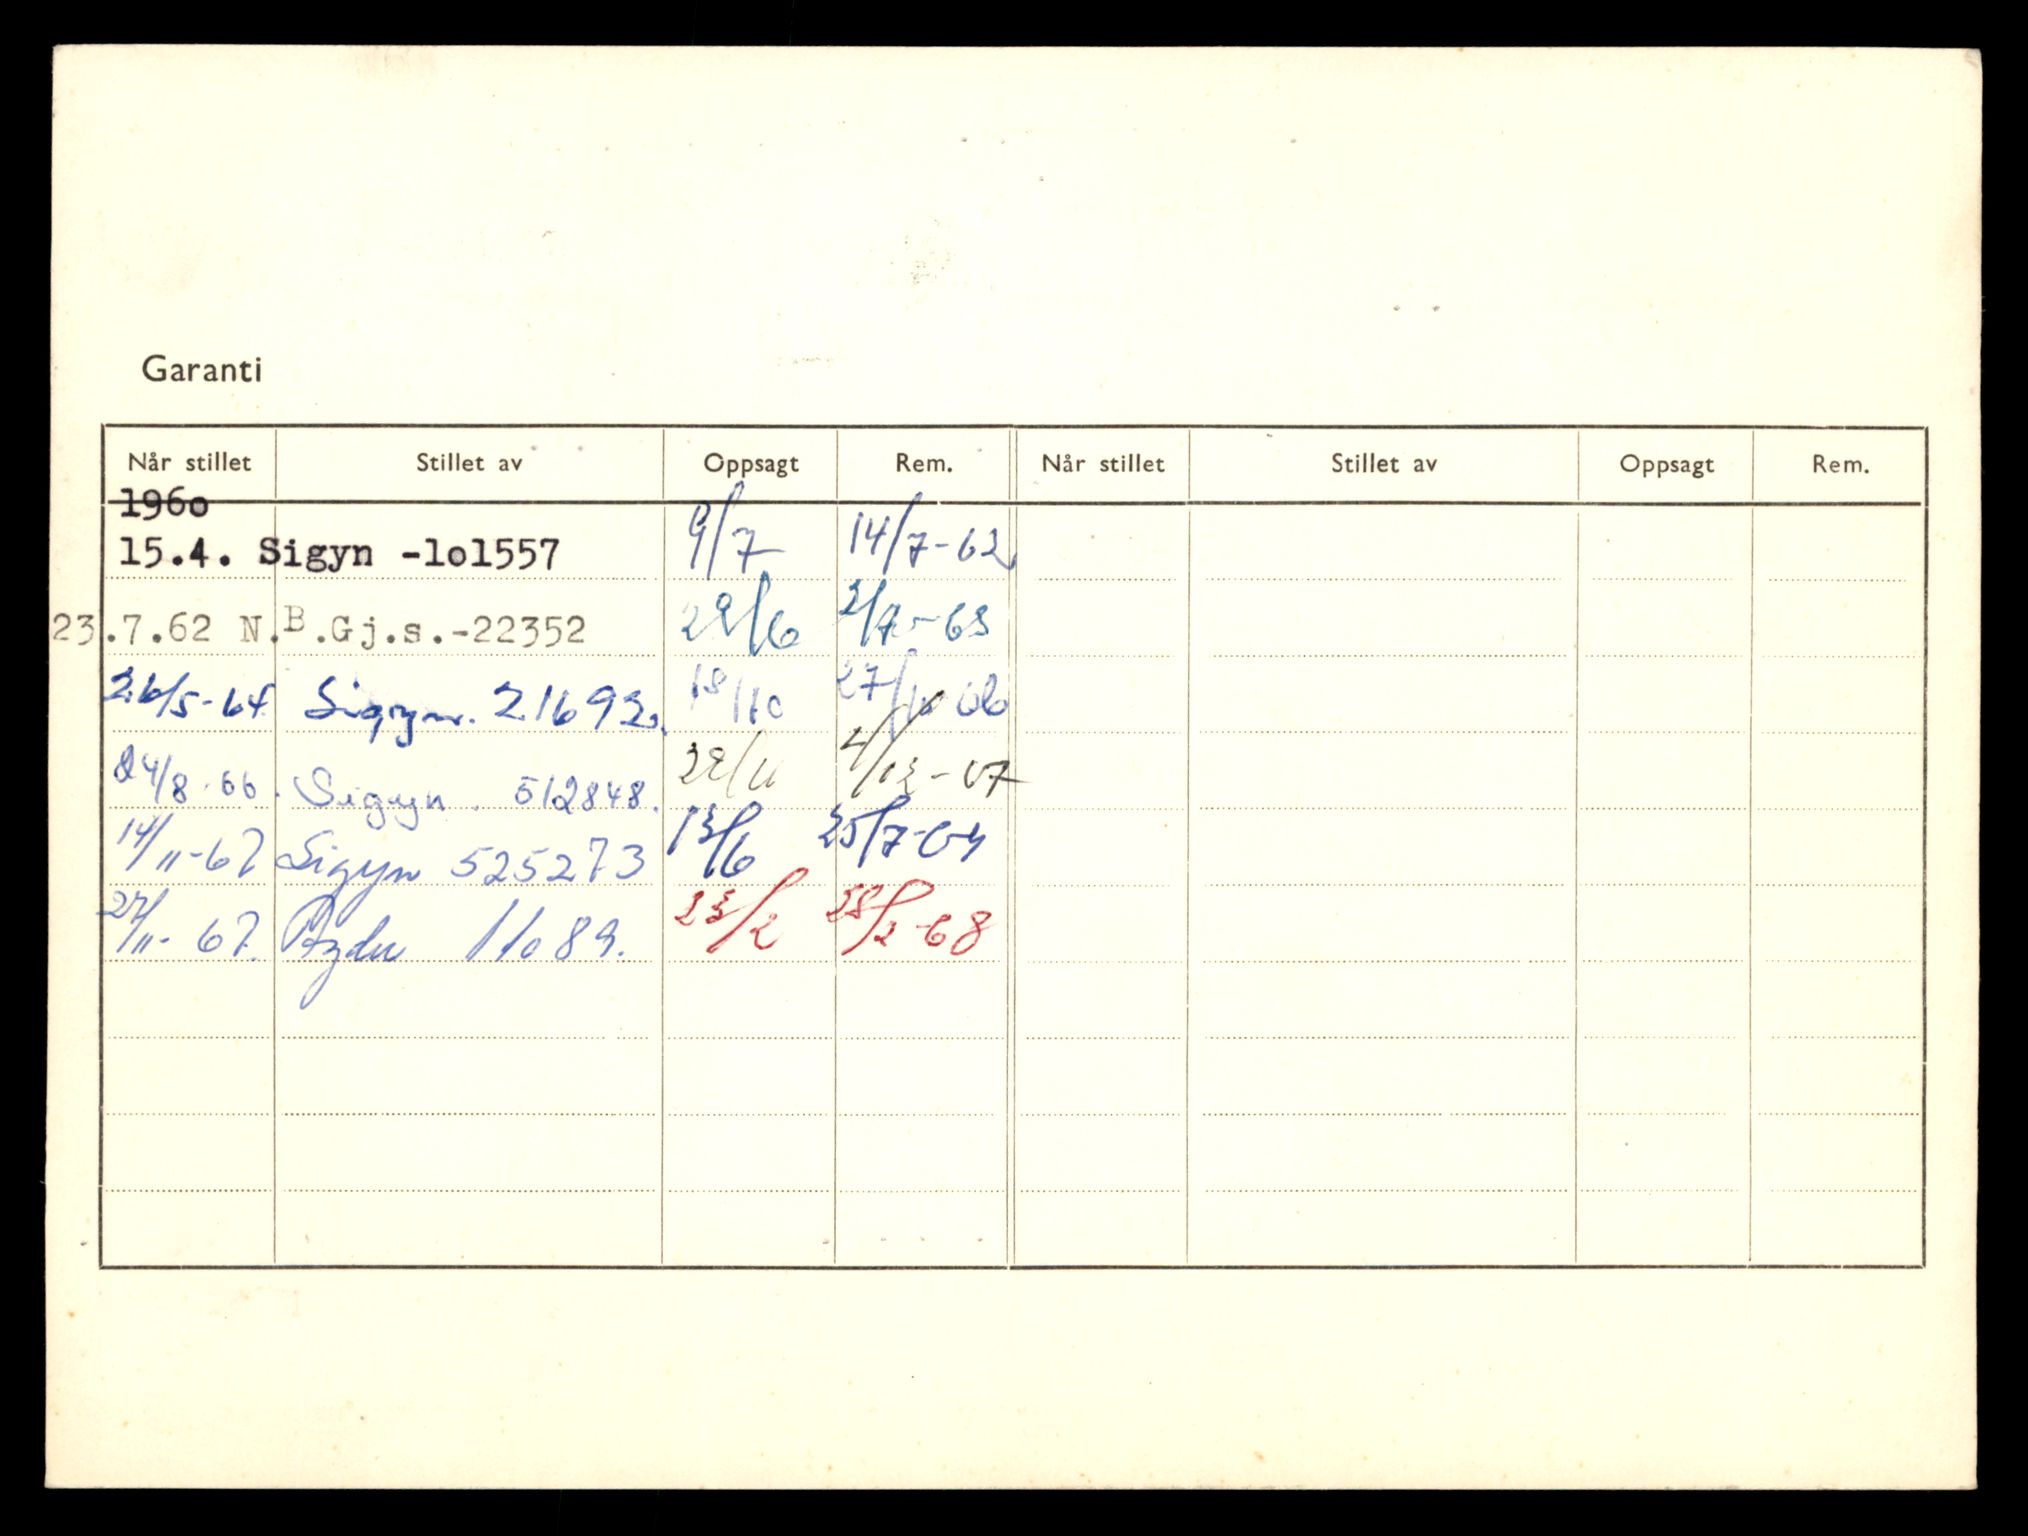 Garanti
Når stillet Stillet av Oppsagt Rem. Når stillet Stillet av Oppsagt Rem.
1960
15.4. Sigyn -lol557 9/7 14/7-62
23.7.62 N.B.Gj.s.-22352 28/6 2/7-63
26/5-64 Sigyn. 21692. 18/10 27/10 66
24/8.66. Sigyn. 512848. 28/11 4/12-67
14/11-67 Sigyn 525273 13/6 25/7-
27/11-67. 11089. 23/2 28/2-68